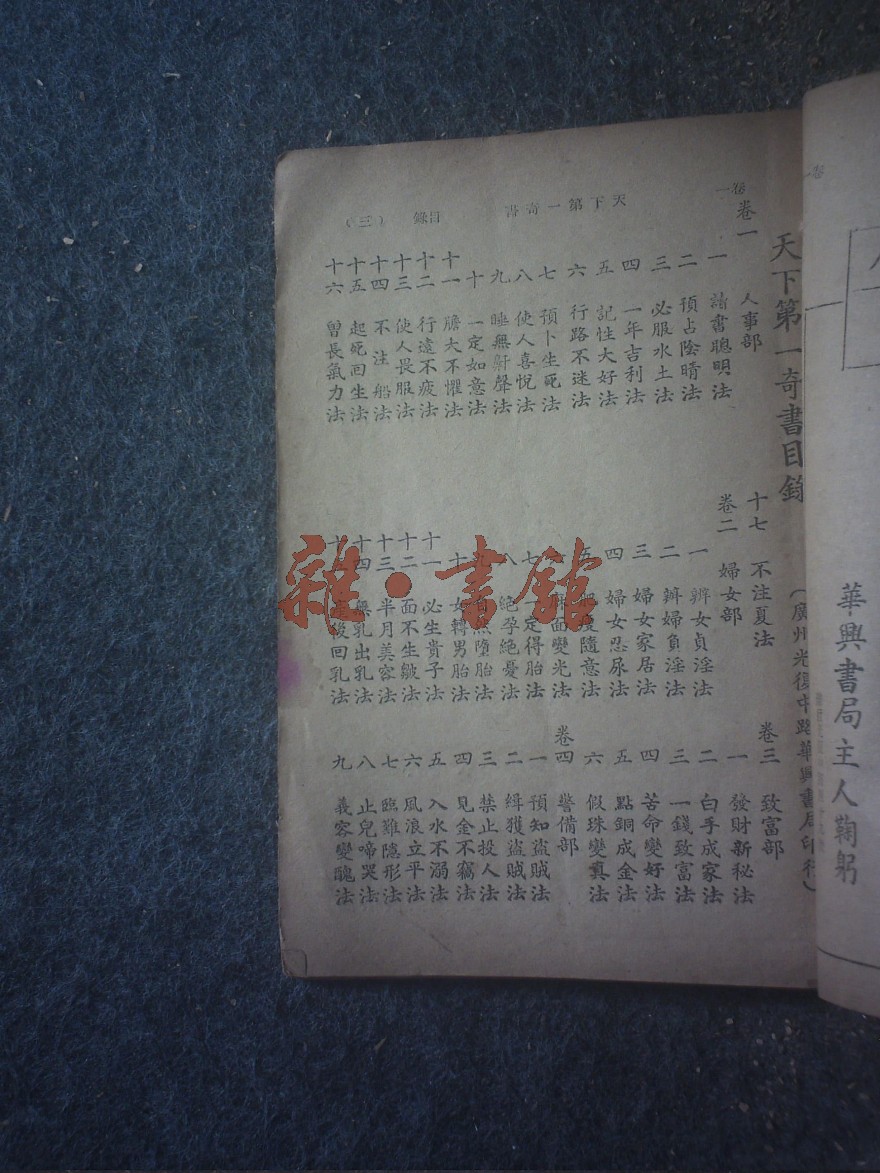 卷一
天下第一奇書
目錄
(三)
天下第一奇書目錄
(廣州光復中路華興書局印行)
卷一 人事部
一 讀書聰明法
二 預占陰晴法
三 必服水土法
四 一年吉利法
五 記性大好法
六 行路不迷法
七 預卜生死法
八 使人喜悅法
九 睡無鼾聲法
十 一定如意法
十一 膽大不懼法
十二 行遠不疲法
十三 使人畏服法
十四 不注船法
十五 起死回生法
十六 曾長氣力法
十七 不注夏法
卷二 婦女部
一 辨女貞淫法
二 辨婦負淫法
三 婦女家居法
四 婦女忍尿法
五 隨意法
面變光法
七 一定得胎法
八 絕孕絕憂法
九 自然墮胎法
十 女轉男胎法
十一 必生貴子法
十二 面不生皺法
十三 半月美容法
十四 無乳出乳法
十 後回乳法
卷三 致富部
一 發財新秘法
二 白手成家法
三 一錢致富法
四 苦命變好法
五 點銅成金法
六 假珠變真法
卷四 警備部
一 預知盜賊法
二 緝獲盜賊法
三 禁止投人法
四 見金不竊法
五 入水不溺法
六 風浪立平法
七 臨難隱形法
八 止兒啼哭法
九 義容變醜法
華興書局主人鞠躬
雜·書館